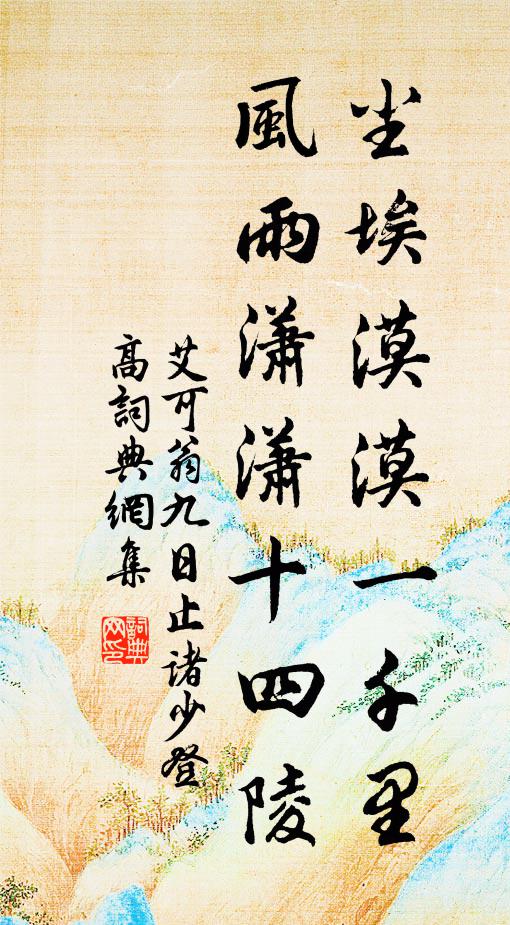 尘埃漠漠一千里
風雨瀟瀟十四陵
艾可翁九日止諸少登
高詞典網集
詞典网印